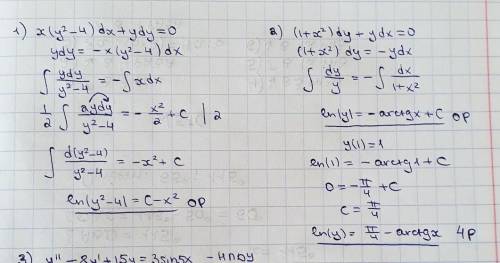 1) x(y²-4)dx+ydy=0
ydy = -x(y²-4)dx
∫ ydy/(y²-4) = -∫xdx
1/2 ∫ 2ydy/(y²-4) = -x²/2 + C | 2
∫ d(y²-4)/(y²-4) = -x²+C
ln(y²-4) = C-x² OP
2) (1+x²)dy+ydx=0
(1+x²)dy = -ydx
∫ dy/y = -∫ dx/(1+x²)
ln(y) = -arctgx+C OP
y(1)=1
ln(1) = -arctg1+C
0 = -π/4 + C
C = π/4
ln(y) = π/4 - arctgx ЧР
3) y'' - 8y' + 15y = 3sin5x - ЛНДУ